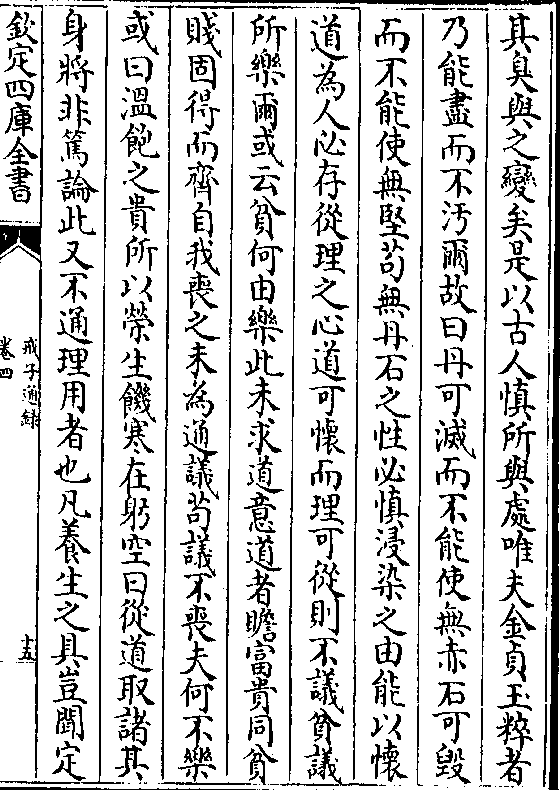 其臭與之變矣是以古人慎所與處唯夫金貞玉粹者
乃能盡而不汚爾故曰丹可滅而不能使無赤石可毁
而不能使無堅茍無丹石之性必慎浸染之由能以懷
道為人必存從理之心道可懷而理可從則不議貧議
所樂爾或云貧何由樂此未求道意道者瞻富貴同貧
賤固得而齊自我喪之未為通議茍議不喪夫何不樂
或曰溫飽之貴所以榮生饑寒在躬空曰從道取諸其
身將非篤論此又不通理用者也凡養生之具豈聞定
欽定四庫全書
戒子通錄
卷四
十五